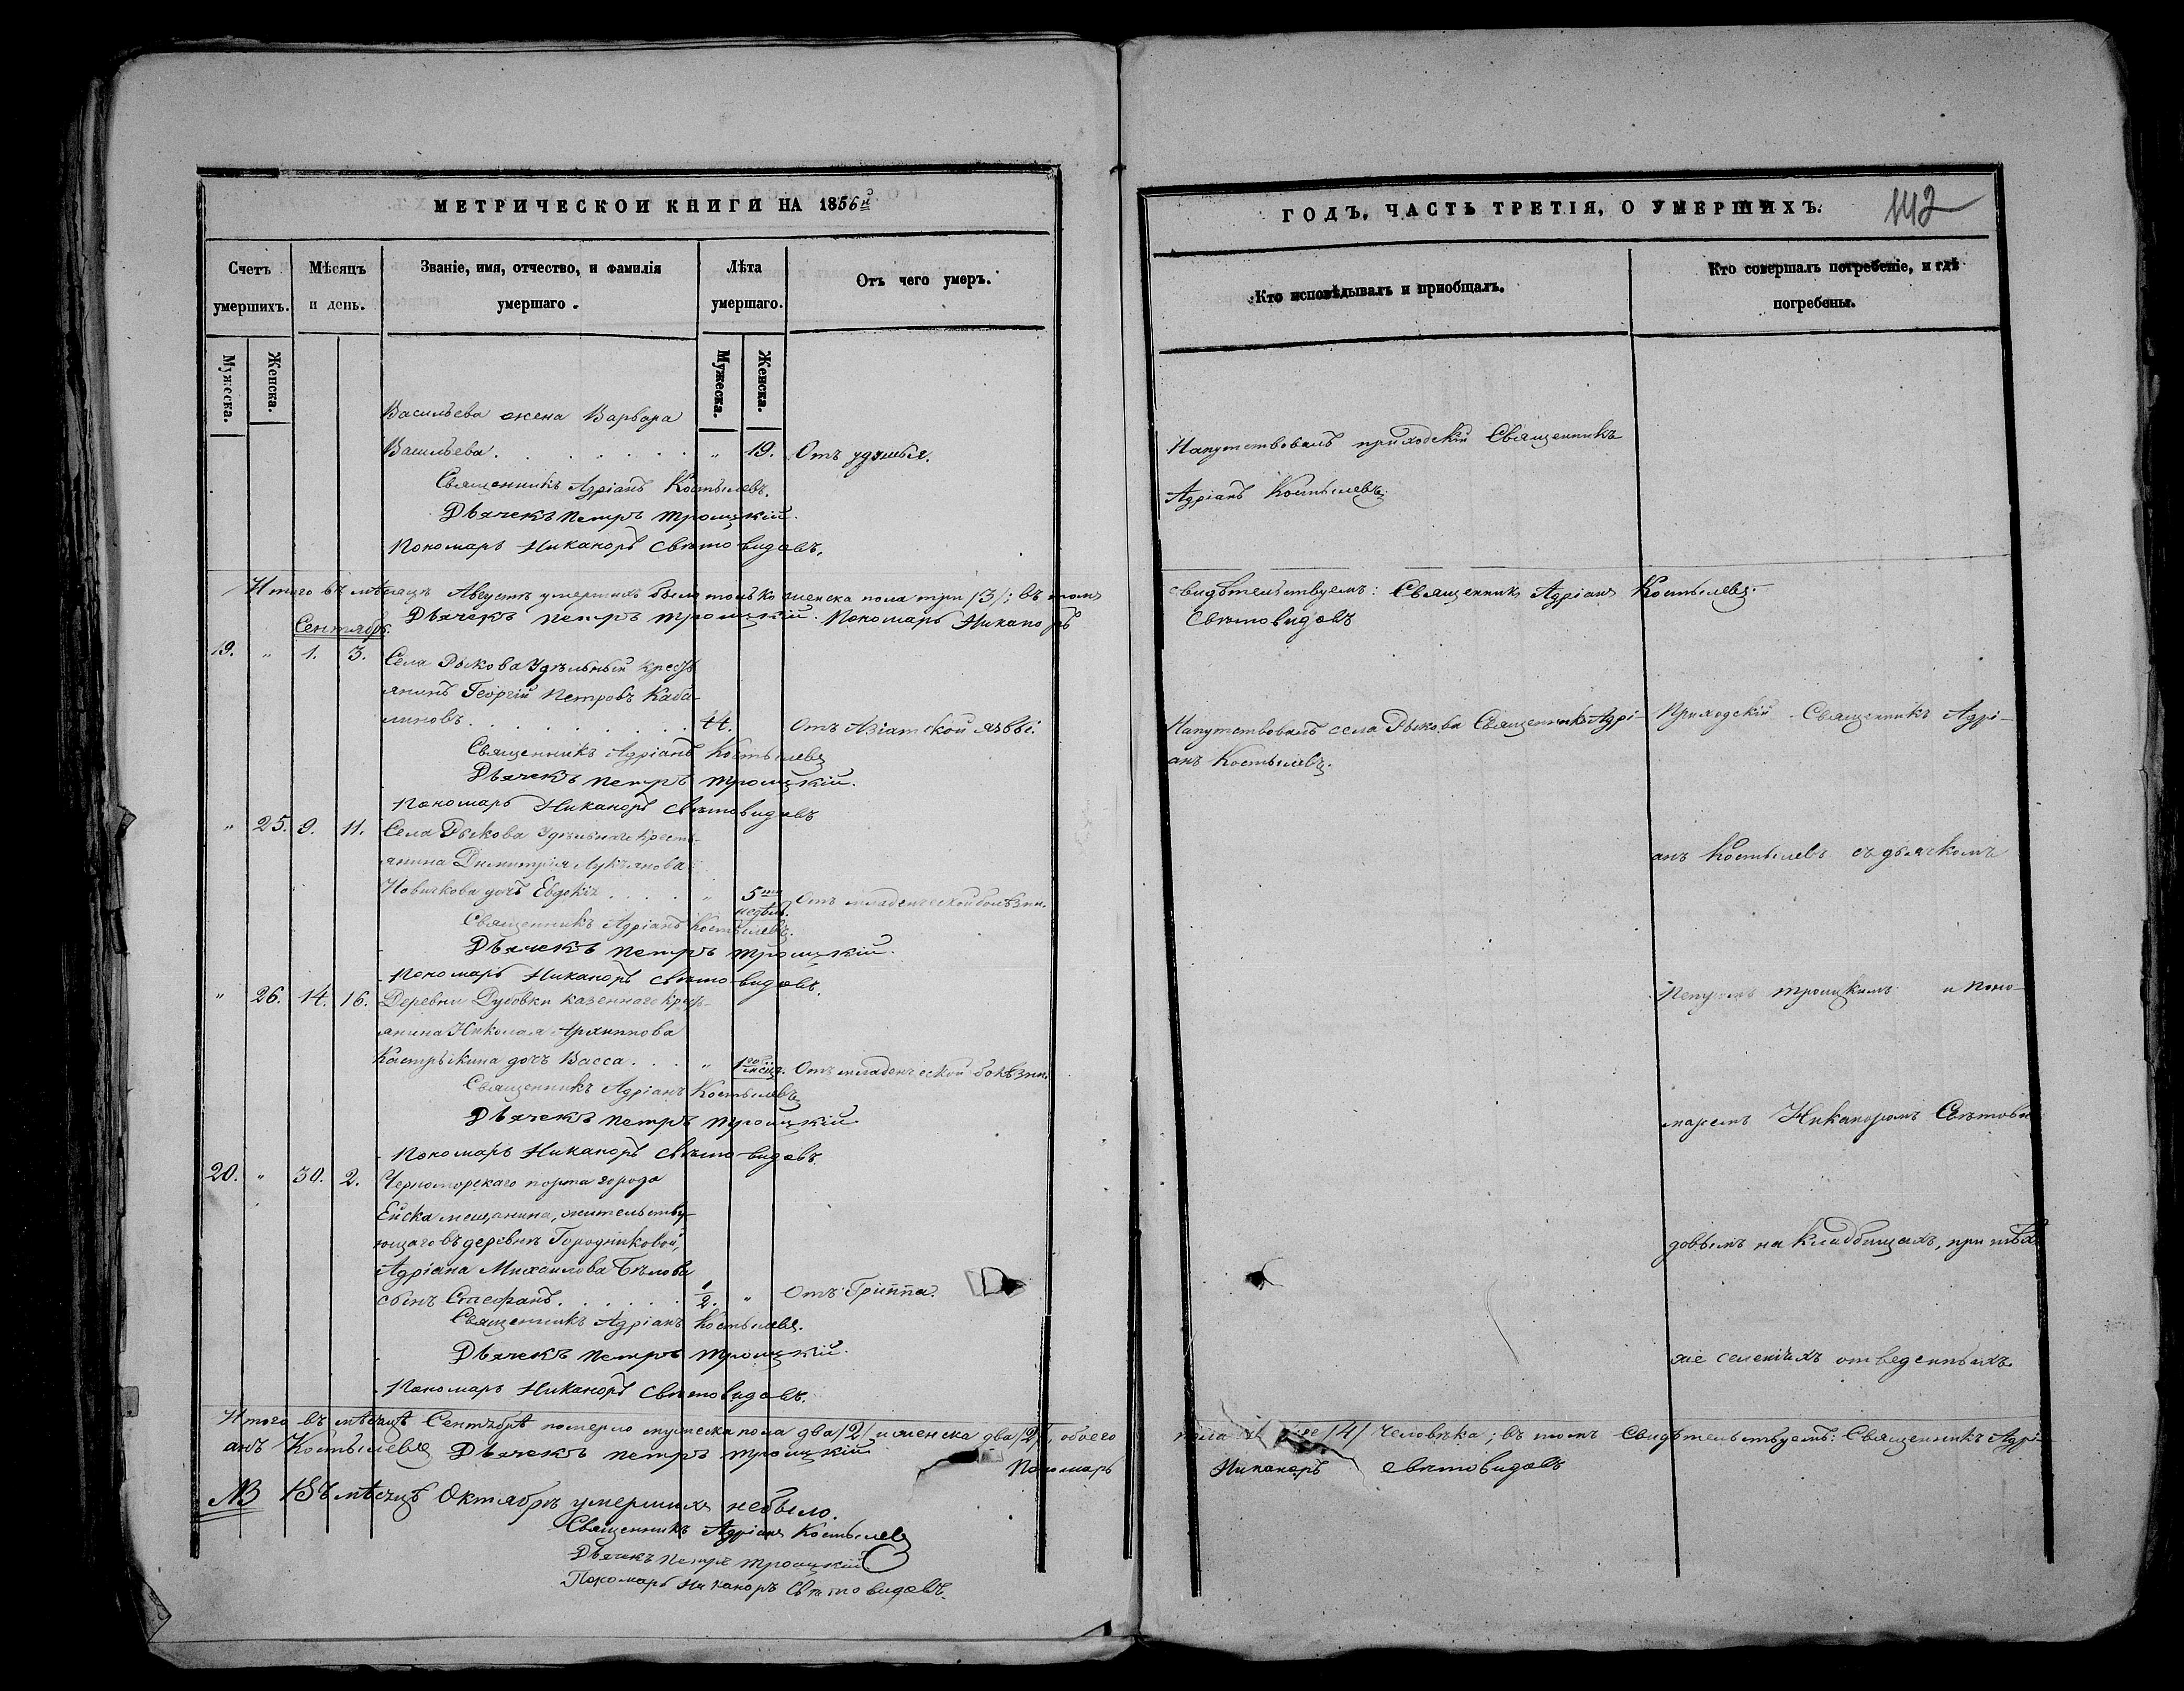 МЕТРИЧЕСКОЙ КНИГИ НА 1856й
Счетъ умершихъ.
Мѣсяцъ и день.
Званіе, имя, отчество, и фамилія умершаго.
Лѣта умершаго.
Отъ чего умеръ.
Мужеска.
Женска.
Мужеска.
Женска.
Васильева жена Варвара
Васильева. „ 19. Отъ удушья.
Священникъ Адріанъ Костылевъ.
Дьячекъ Петръ Троицкій.
Пономарь Никаноръ Свѣтовидовъ.
Итого въ мѣсяцѣ Августѣ умершихъ было только женска пола три /3/; въ томъ
Дьячекъ Петръ Троицкій. Пономарь Никаноръ
Сентябрь.
19. „ 1. 3. Села Рыкова Удѣльный кресть-
янинъ Георгій Петровъ Каба-
линовъ. 44. Отъ Азіатской язвы.
Священникъ Адріанъ Костылевъ
Дьячекъ Петръ Троицкій.
Пономарь Никаноръ Свѣтовидовъ
„ 25. 9. 11. Села Рыкова Удѣльнаго кресть-
янина Димитрія Лукьянова
Новичкова дочь Евдокія „ 5ти недѣл. Отъ младенческой болѣзни.
Священникъ Адріанъ Костылевъ.
Дьячекъ Петръ Троицкій.
Пономарь Никаноръ Свѣтовидовъ.
„ 26. 14. 16. Деревни Дубовки казеннаго крест-
янина Николая Архиппова
Кастрыкина дочь Васса. „ 1го мѣсяц. Отъ младенческой болѣзни.
Священникъ Адріанъ Костылевъ
Дьячекъ Петръ Троицкій
Пономарь Никаноръ Свѣтовидовъ.
20. „ 30. 2. Черноморскаго порта города
Ейска мещанина, жительству-
ющаго въ деревнѣ Городниковой,
Адріана Михаилова Бѣлова
сынъ Стефанъ. 1/2. „ Отъ Гриппа.
Священникъ Адріанъ Костылевъ.
Дьячекъ Петръ Троицкій.
Пономарь Никаноръ Свѣтовидовъ.
Итого въ мѣсяцѣ Сентябрѣ померло мужеска пола два /2/ и женска два /2/, обоего
анъ Костылевъ Дьячекъ Петръ Троицкій Пономарь
NB Въ мѣсяцѣ Октябрѣ умершихъ небыло.
Священникъ Адріанъ Костылевъ
Дьячекъ Петръ Троицкій
Пономарь Никаноръ Свѣтовидовъ.
ГОДЪ, ЧАСТЬ ТРЕТІЯ, О УМЕРШИХЪ.
142
Кто исповѣдывалъ и пріобщалъ.
Кто совершалъ погребеніе, и гдѣ погребены.
Напутствовалъ приходскій Священникъ
Адріанъ Костылевъ.
свидѣтельствуемъ: Священникъ Адріанъ Костылевъ.
Свѣтовидовъ
Напутствовалъ села Рыкова Священникъ Адрі-
анъ Костылевъ.
Приходскій Священникъ Адрі-
анъ Костылевъ съ дьячкомъ
Петромъ Троицкимъ и Поно-
маремъ Никаноромъ Свѣтови-
довымъ на кладбищахъ, при тѣхъ
же селеніяхъ отведенныхъ.
пола /4/ человѣка; въ томъ свидѣтельствуемъ: Священникъ Адрі-
Никаноръ Свѣтовидовъ